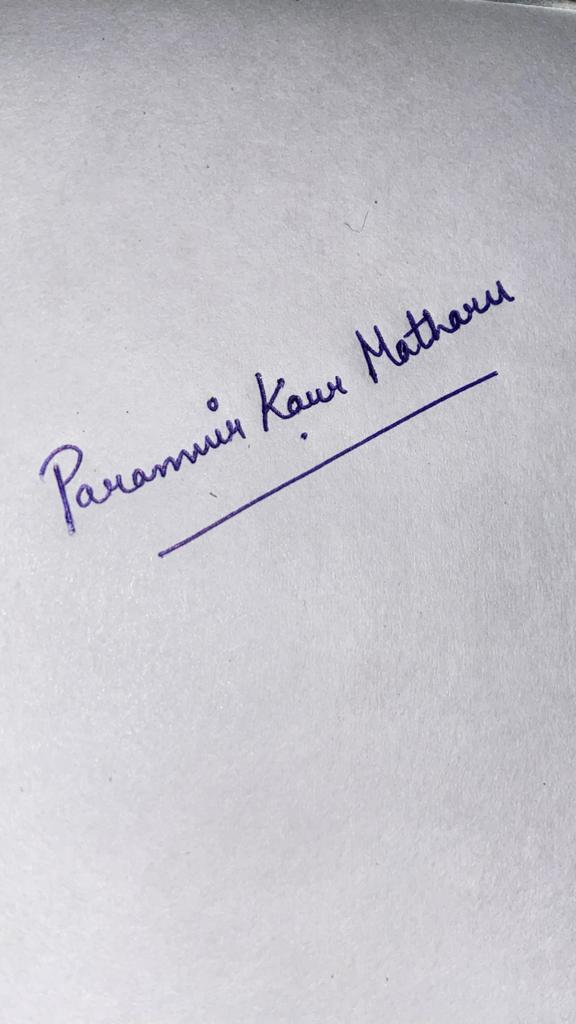 Paramvir Kaur Matharu